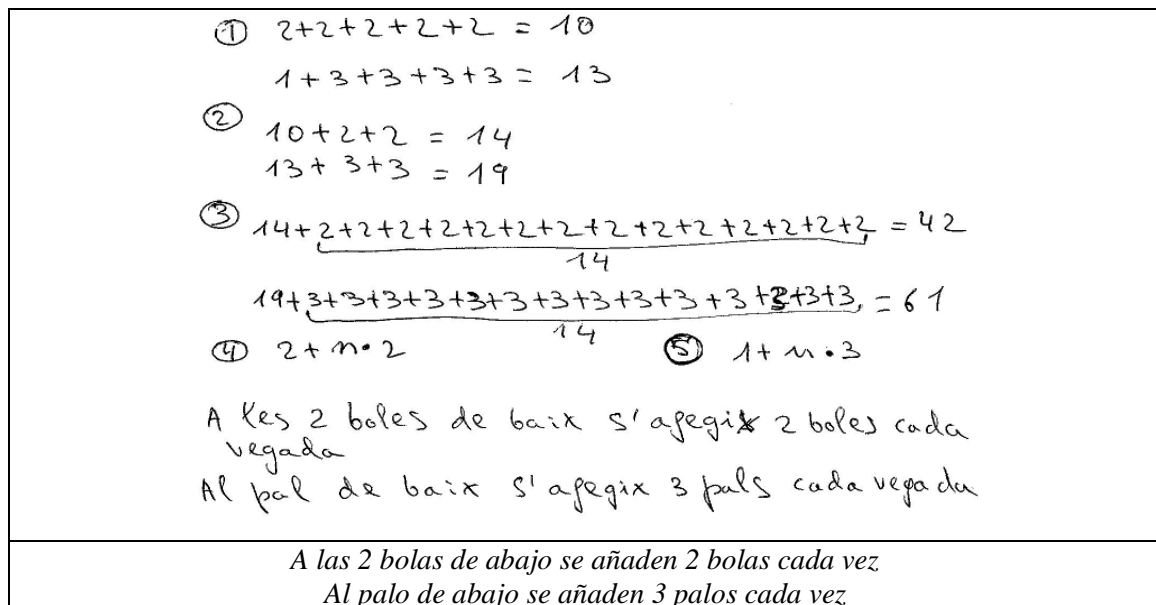 ① 2+2+2+2+2 = 10
1+3+3+3+3 = 13
② 10+2+2 = 14
13+3+3 = 19
③ 14+2+2+2+2+2+2+2+2+2+2+2+2+2+2 = 42
14
19+3+3+3+3+3+3+3+3+3+3+3+3+3+3 = 61
14
④ 2+n·2 ⑤ 1+n·3
A les 2 boles de baix s'afegix 2 boles cada
vegada
Al pal de baix s'afegix 3 pals cada vegada
A las 2 bolas de abajo se añaden 2 bolas cada vez
Al palo de abajo se añaden 3 palos cada vez